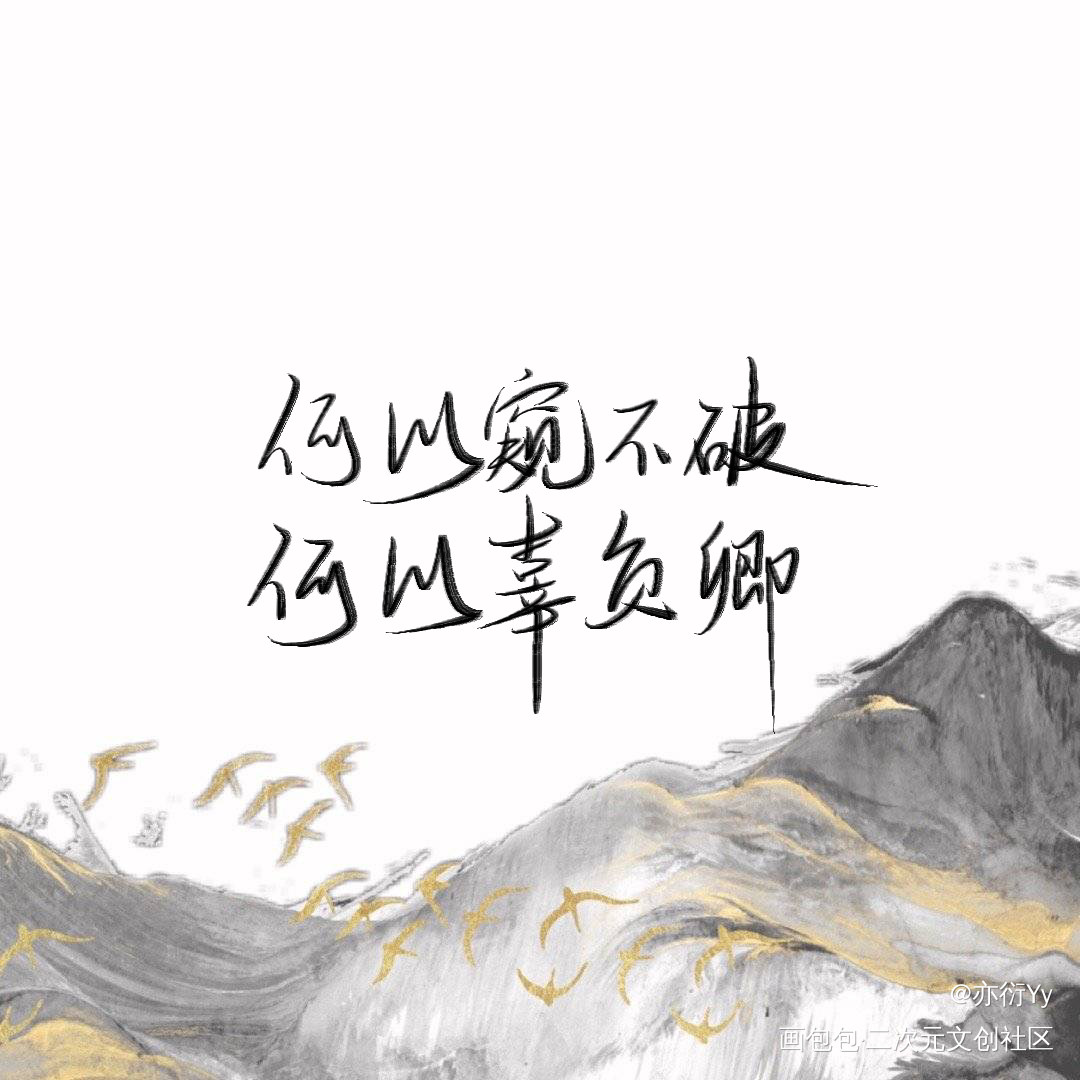 何以窥不破
何以辜负卿
@亦衍Yy
画包包·二次元文创社区